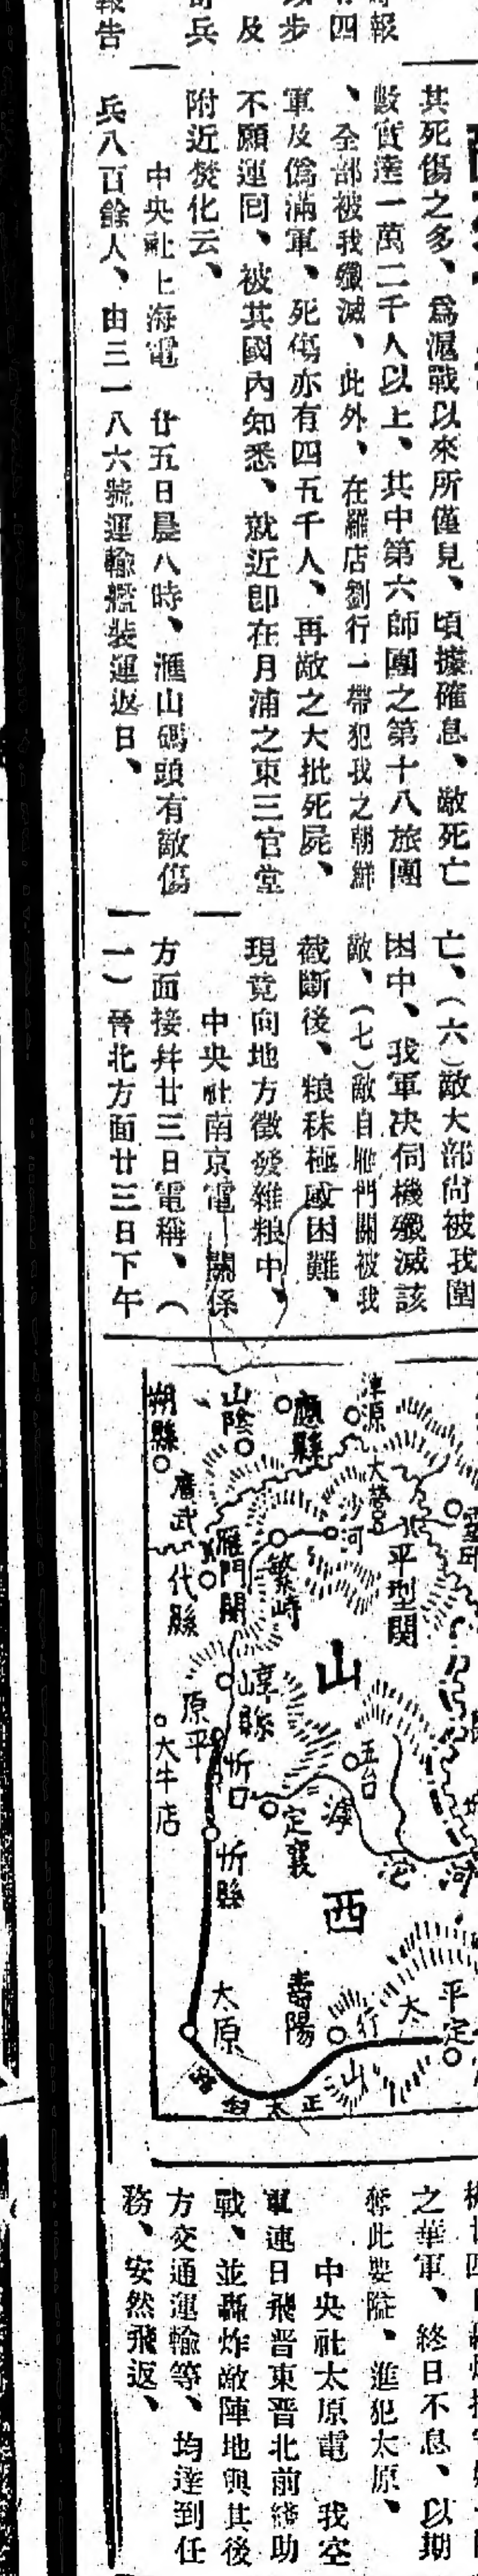 報
四
步
及
兵
報告
其死傷之多、爲滬戰以來所僅見、頃據確息、敵死亡
數實達一萬二千人以上、其中第六師團之第十八旅團
、全部被我殲滅、此外、在羅店劉行一帶犯我之朝鮮
軍及僞滿軍、死傷亦有四五千人、再敵之大批死屍、
不願運囘、被其國內知悉、就近卽在月浦之東三官堂
附近焚化云、
中央社上海電　廿五日晨八時、滙山碼頭有敵傷
兵八百餘人、由三一八六號運輸艦裝運返日、
亡、（六）敵大部尙被我圍
困中、我軍决伺機殲滅該
敵、（七）敵自雁門關被我
截斷後、粮秣極感困難、
現竟向地方徵發雜粮中、
中央社南京電　關係
方面接幷廿三日電稱、（
一）晉北方面廿三日下午
渾源
應縣
山陰
朔縣
廣武
大營
沙河
平型關
雁門關
繁峙
代縣
山
崞縣
原平
大牛店
忻口
定襄
五台
滹
沱
河
忻縣
西
太原
壽陽
平定
太
行
山
正太
之華軍、終日不息、以期
奪此要隘、進犯太原、
中央社太原電　我空
軍連日飛晉東晉北前綫助
戰、並轟炸敵陣地與其後
方交通運輸等、均達到任
務、安然飛返、